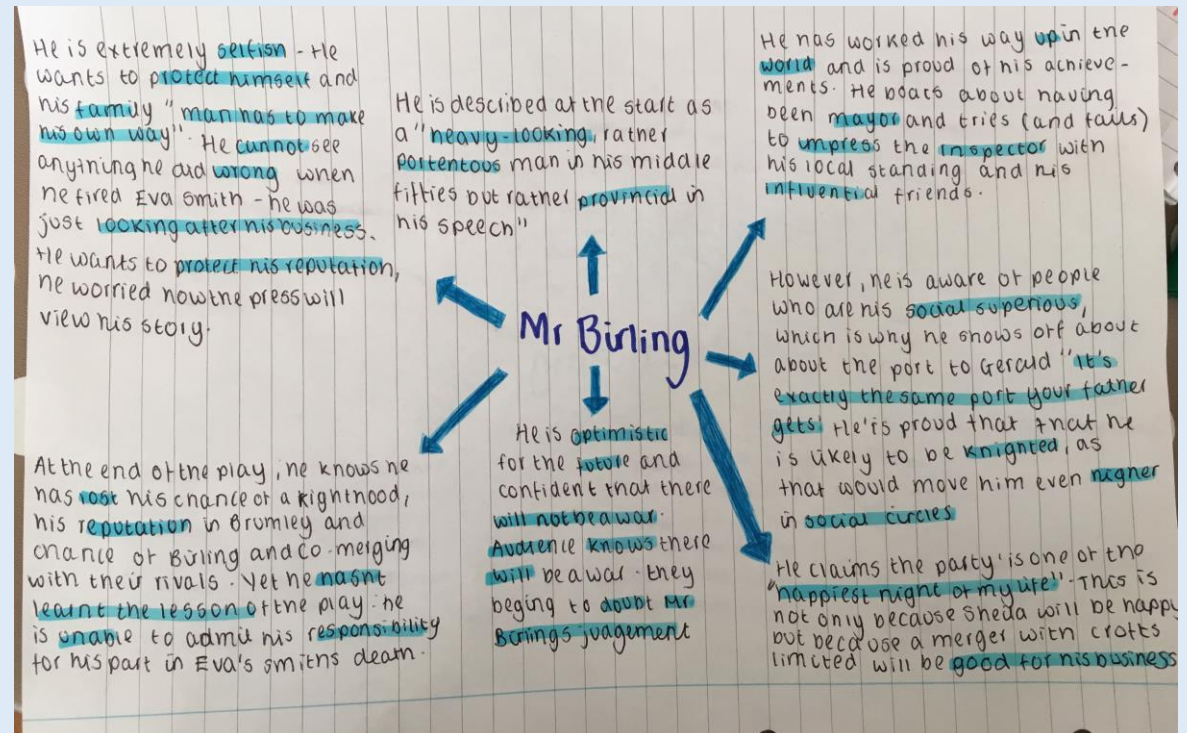 He is extremely selfish - He
wants to protect himself and
his family "man has to make
his own way". He cannot see
anything he did wrong when
he fired Eva Smith - he was
just looking after his business.
He wants to protect his reputation,
he worried how the press will
view his story.
He is described at the start as
a "heavy-looking, rather
portentous man in his middle
fifties but rather provincial in
his speech"
He has worked his way up in the
world and is proud of his achieve-
ments. He boats about having
been mayor and tries (and fails)
to impress the inspector with
his local standing and his
influential friends.
Mr Birling
However, he is aware of people
who are his social superious,
which is why he shows off about
about the port to Gerald "it's
exactly the same port your father
gets. He'is proud that that he
is likely to be knighted, as
that would move him even higher
in social circles
At the end of the play, he knows he
has lost his chance of a kighthood,
his reputation in Brumley and
chance of Birling and co. merging
with their rivals. Yet he hasnt
learnt the lesson of the play: he
is unable to admit his responsibility
for his part in Eva's smiths death.
He is optimistic
for the future and
confident that there
will not be a war.
Audience knows there
will be a war. they
beging to doubt Mr
Birlings judgement
He claims the party 'is one of the
"happiest night of my life". This is
not only because Sheila will be happy
but because a merger with crofts
limited will be good for his business